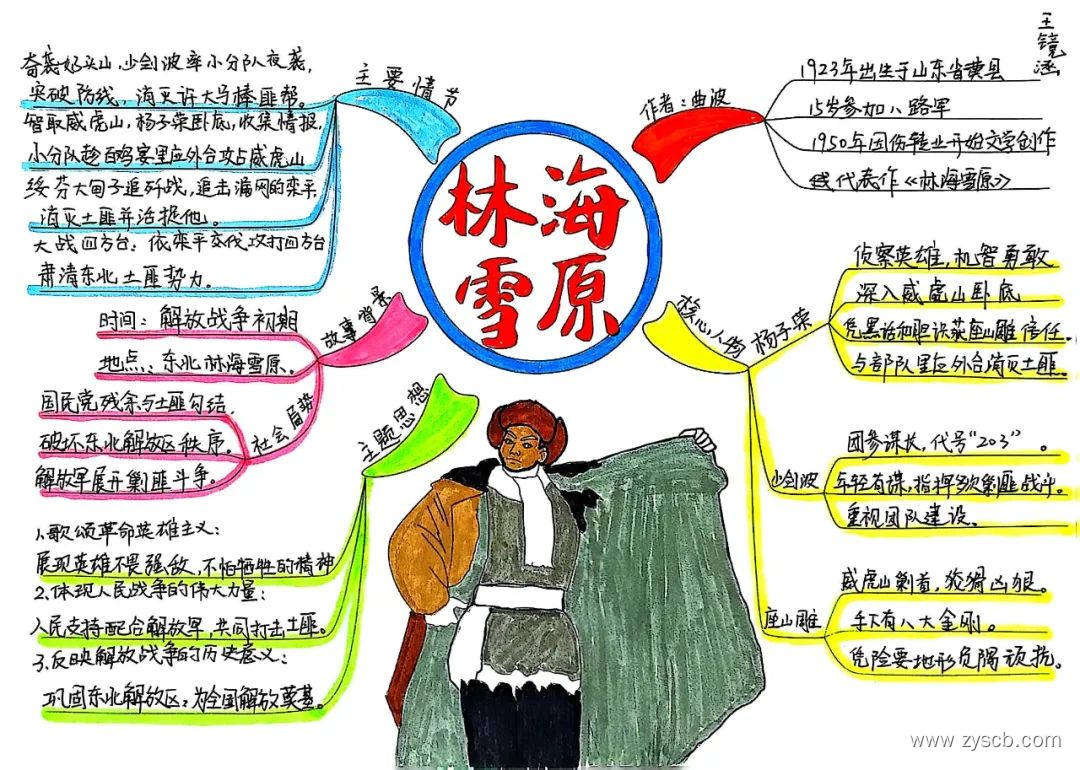 王镜涵
林海
雪原
主要情节
奇袭奶头山，少剑波率小分队夜袭，
突破防线，消灭许大马棒匪帮。
智取威虎山，杨子荣卧底，收集情报，
小分队趁百鸡宴里应外合攻占威虎山
绥芬大甸子追歼战，追击漏网的栾平，
消灭土匪并活捉他。
大战四方台：依栾平交代，攻打四方台
肃清东北土匪势力。
故事背景
时间：解放战争初期
地点：东北林海雪原。
社会局势
国民党残余与土匪勾结，
破坏东北解放区秩序。
解放军展开剿匪斗争。
主题思想
1.歌颂革命英雄主义：
展现英雄不畏强敌，不怕牺牲的精神
2.体现人民战争的伟大力量：
人民支持配合解放军，共同打击土匪。
3.反映解放战争的历史意义：
巩固东北解放区；为全国解放奠基。
作者：曲波
1923年出生于山东省黄县
15岁参加八路军
1950年因伤转业开始文学创作
代表作《林海雪原》
核心人物
杨子荣
侦察英雄，机智勇敢
深入威虎山卧底
凭黑话和胆识获座山雕信任。
与部队里应外合消灭土匪。
少剑波
团参谋长，代号“203”。
年轻有谋，指挥多次剿匪战斗。
重视团队建设。
座山雕
威虎山匪首，狡猾凶狠。
手下有八大金刚。
凭险要地形负隅顽抗。
www.zyscb.com